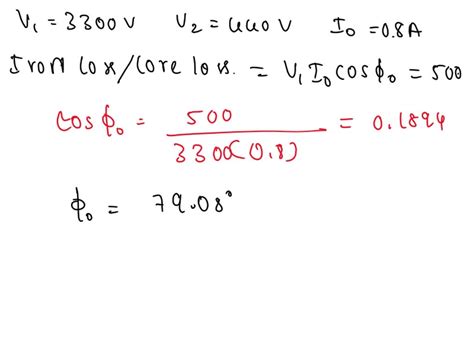 V₁ = 3300 V V₂ = 440 V I₀ = 0.8A
Iron loss/core loss. = V₁ I₀ cosϕ₀ = 500
cosϕ₀ = 500 / 3300(0.8) = 0.1894
ϕ₀ = 79.08°